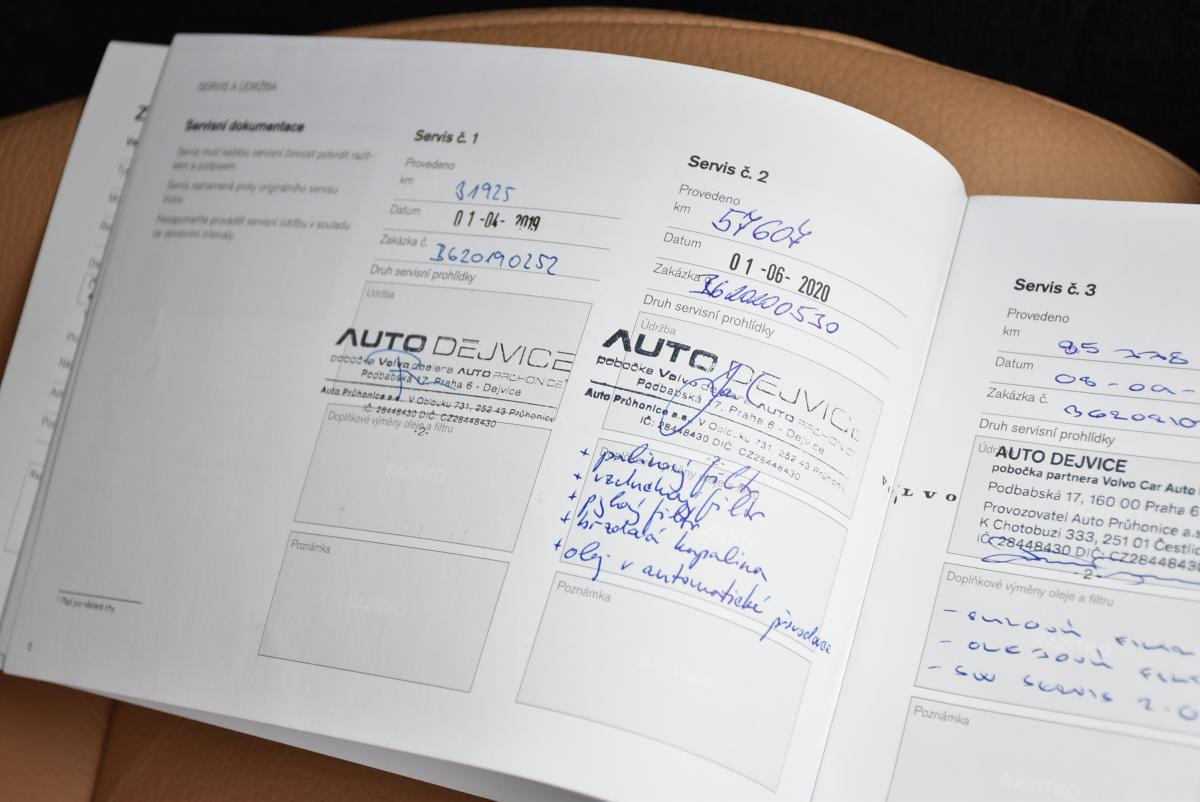 SERVIS A ÚDRŽBA
Servisní dokumentace
Servis musí každou servisní činnost potvrdit razít-
kem a podpisem.
Servis zaznamená prvky originálního servisu
Volvo.
Nezapomeňte provádět servisní údržbu v souladu
se servisními intervaly.
1 Platí pro některé trhy.
6
Servis č. 1
Provedeno
km 31925
Datum 01-04-2019
Zakázka č. B620190252
Druh servisní prohlídky
Údržba
AUTO DEJVICE
pobočka Volvo dealera AUTO PRŮHONICE
Podbabská 17, Praha 6 - Dejvice
Auto Průhonice a.s., V Oblouku 731, 252 43 Průhonice
IČ: 28448430 DIČ: CZ28448430
-2-
Doplňkové výměny oleje a filtru
RAZÍTKO
Poznámka
RAZÍTKO
Servis č. 2
Provedeno
km 57607
Datum 01-06-2020
Zakázka B620200530
Druh servisní prohlídky
Údržba
AUTO DEJVICE
pobočka Volvo AUTO PRŮHONICE
Podbabská 17, Praha 6 - Dejvice
Auto Průhonice a.s., V Oblouku 731, 252 43 Průhonice
IČ: 28448430 DIČ: CZ28448430
-2-
+ palivový filtr
+ vzduchový filtr
+ pylový filtr
+ brzdová kapalina
+ olej v automatické převodovce
Poznámka
RAZÍTKO
VOLVO
Servis č. 3
Provedeno
km 85 778
Datum 08-09-
Zakázka č. B620210
Druh servisní prohlídky
AUTO DEJVICE
pobočka partnera Volvo Car Auto
Podbabská 17, 160 00 Praha 6
Provozovatel Auto Průhonice a.s
K Chotobuzi 333, 251 01 Čestlice
IČ 28448430 DIČ: CZ28448430
-2-
Doplňkové výměny oleje a filtru
- OLEJOVÝ FILT
- SW SERVIS 2.0
Poznámka
RAZÍTKO